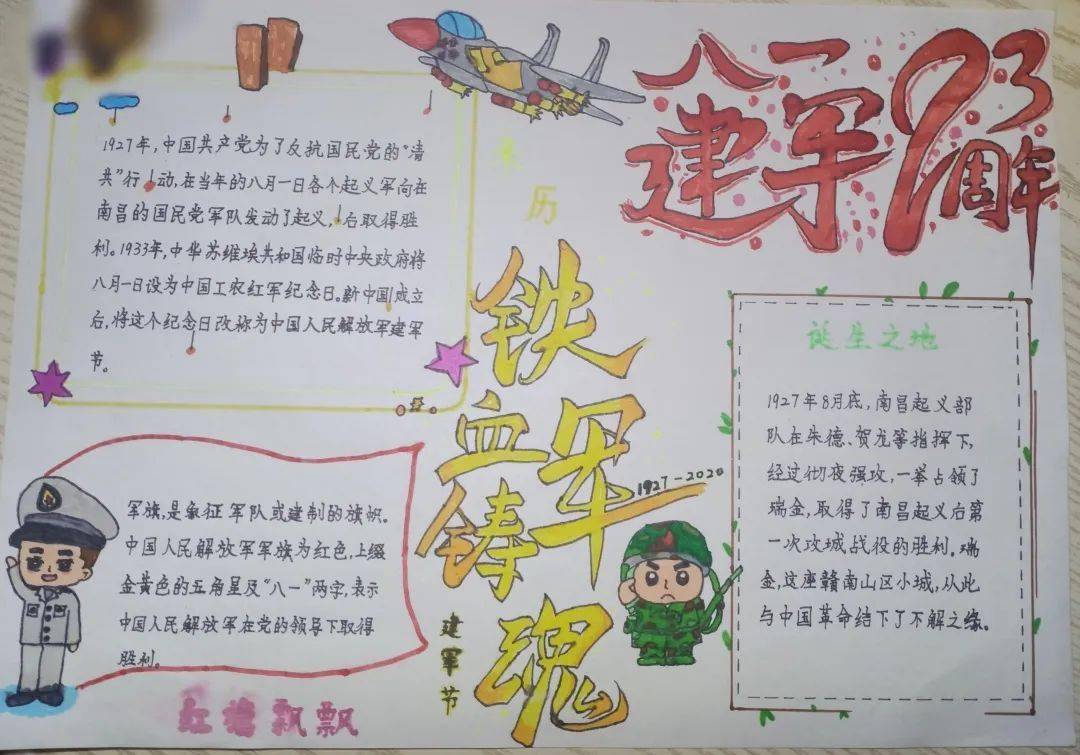 八一
建军93
周年
来
历
1927年,中国共产党为了反抗国民党的“清
共”行动,在当年的八月一日各个起义军向在
南昌的国民党军队发动了起义,后取得胜
利。1933年,中华苏维埃共和国临时中央政府将
八月一日设为中国工农红军纪念日。新中国成立
后,将这个纪念日改称为中国人民解放军建军
节。
铁
血军
铸
魂
1927-2020
建
军
节
诞生之地
1927年8月底,南昌起义部
队在朱德、贺龙等指挥下,
经过彻夜强攻,一举占领了
瑞金,取得了南昌起义后第
一次攻城战役的胜利。瑞
金,这座赣南山区小城,从此
与中国革命结下了不解之缘。
军旗,是象征军队或建制的旗帜。
中国人民解放军军旗为红色,上缀
金黄色的五角星及“八一”两字,表示
中国人民解放军在党的领导下取得
胜利。
红旗飘飘